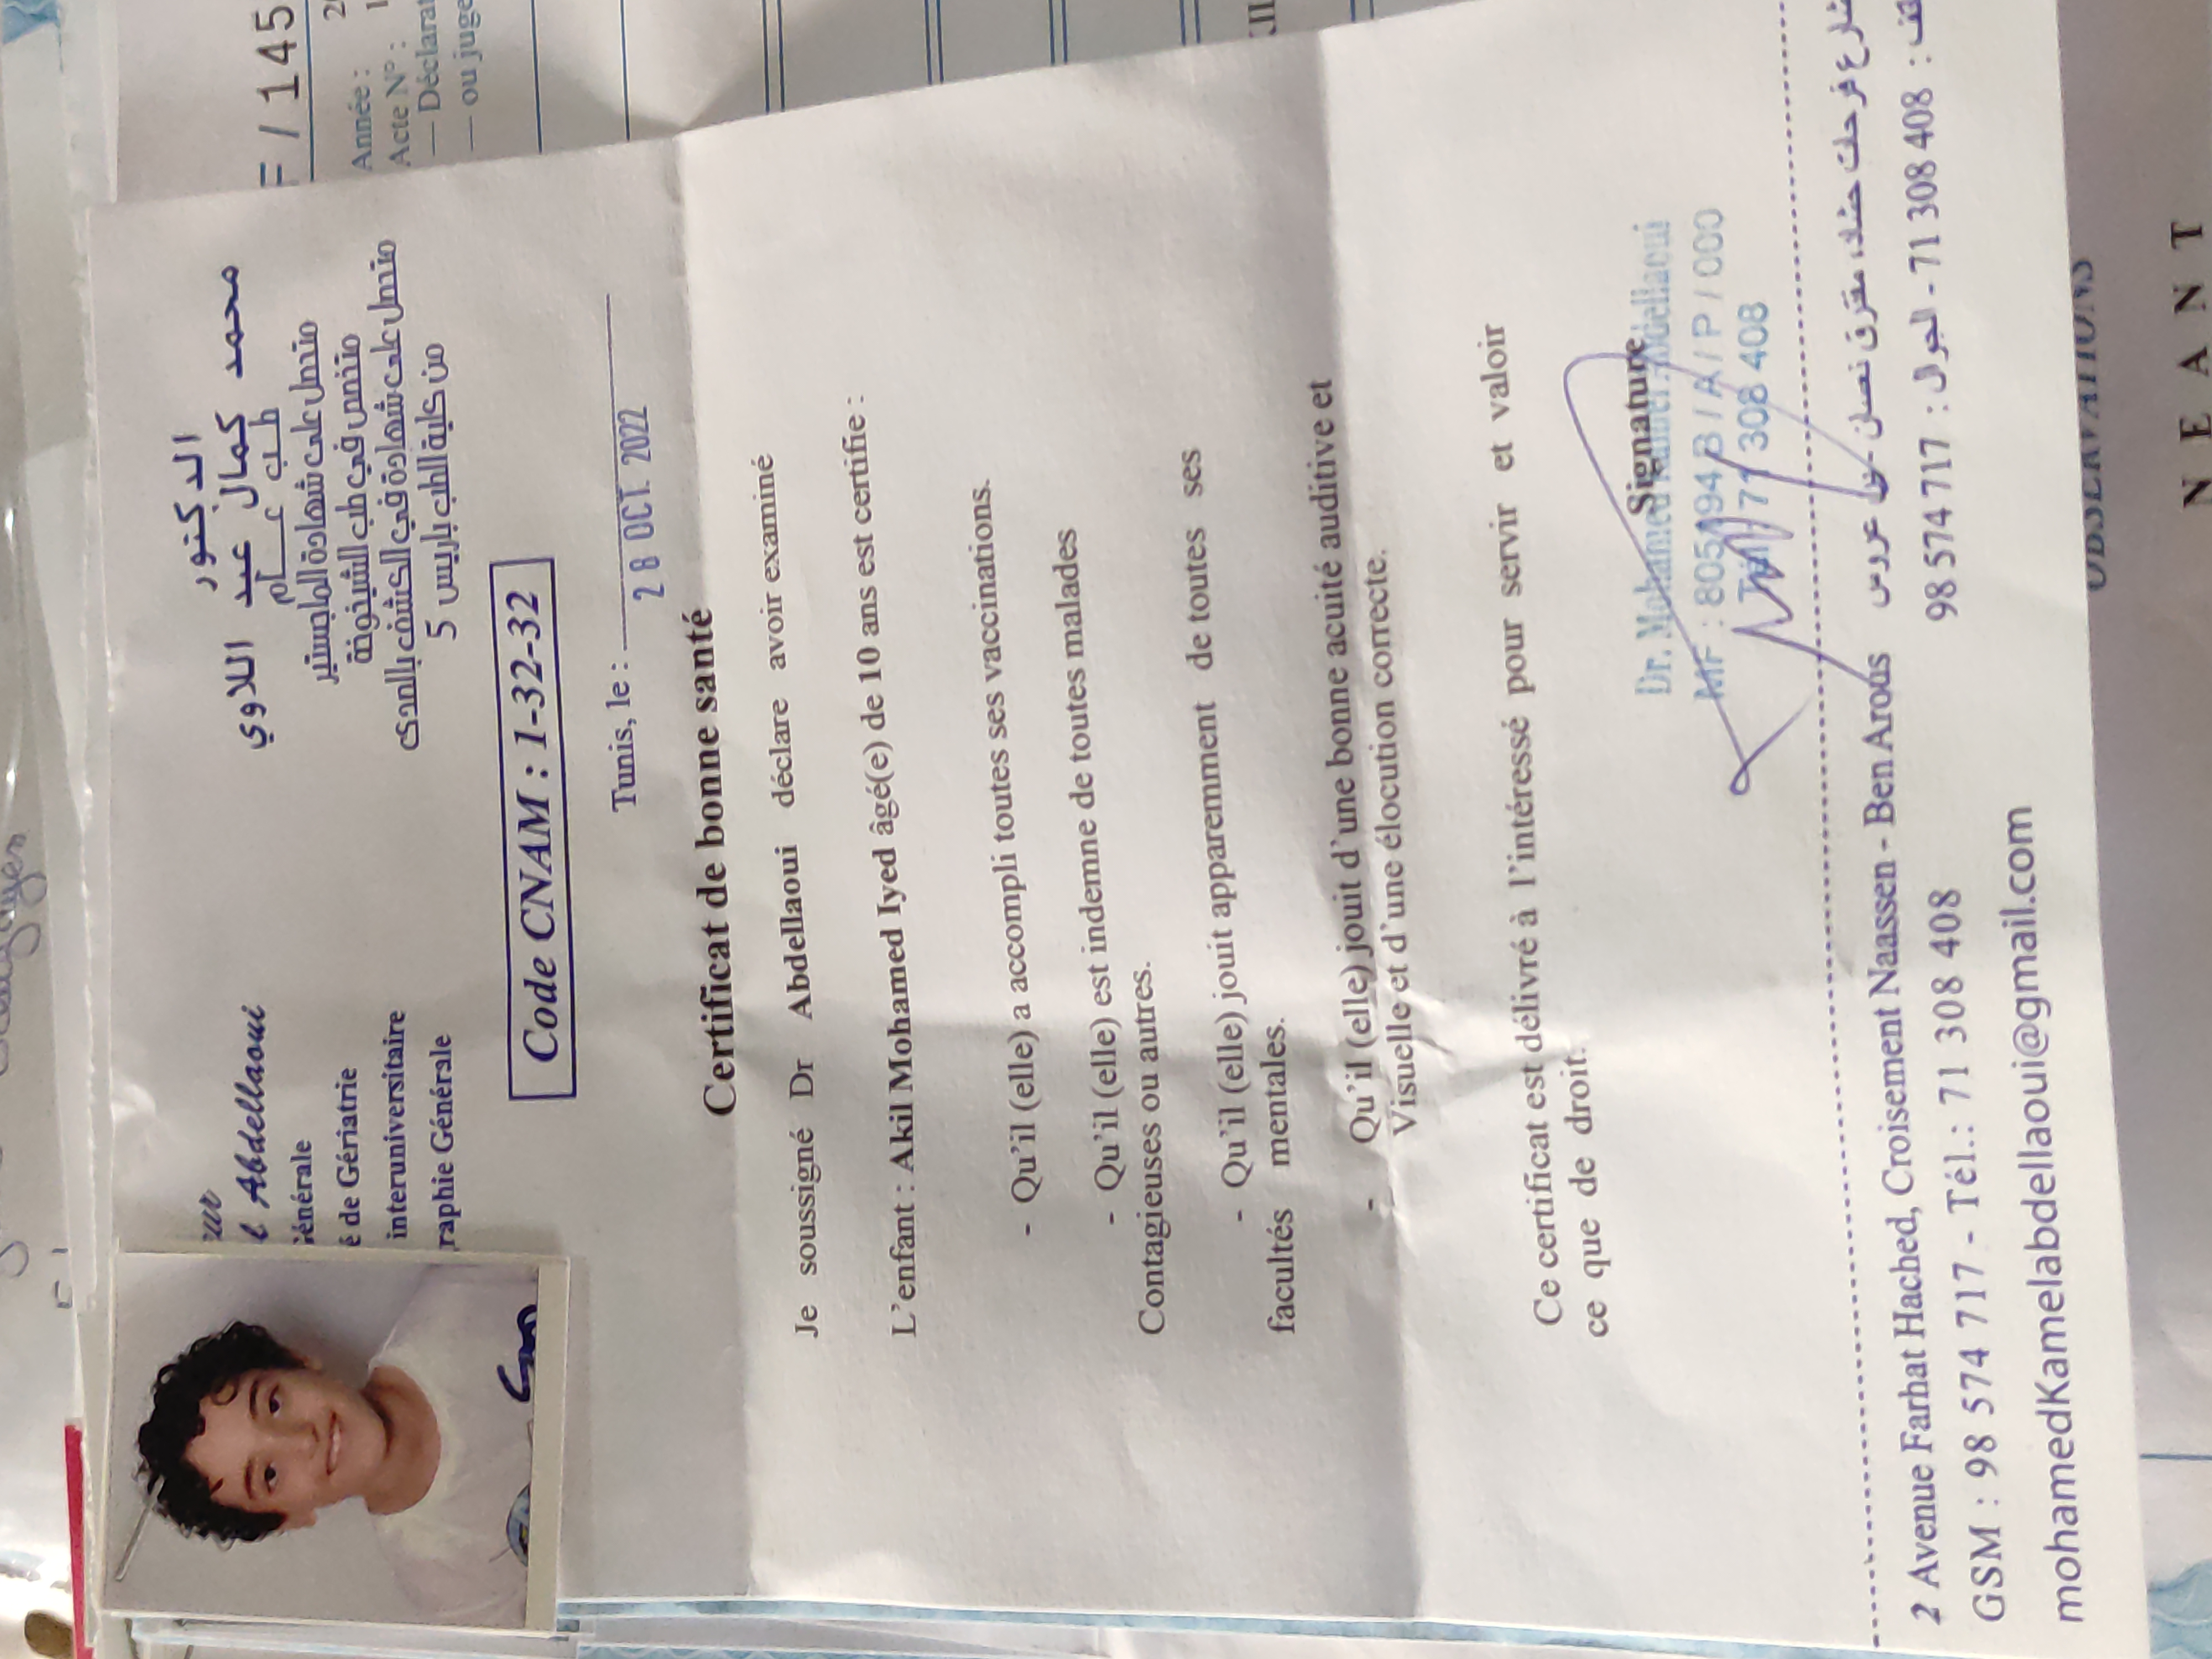 F / 145
Année :
Acte N° :
— Déclarat
— ou juge
ur
l Abdellaoui
énérale
é de Gériatrie
interuniversitaire
raphie Générale
الدكتور
محمد كمال عبد اللاوي
طب عام
متحصل على شهادة الماجستير
متخصص في طب الشيخوخة
متحصل على شهادة في الكشف بالصدى
من كلية الطب باريس 5
Code CNAM : 1-32-32
Tunis, le :
28 OCT. 2022
Certificat de bonne santé
Je soussigné Dr Abdellaoui déclare avoir examiné
L'enfant : Akil Mohamed Iyed âgé(e) de 10 ans est certifie :
- Qu'il (elle) a accompli toutes ses vaccinations.
- Qu'il (elle) est indemne de toutes malades
Contagieuses ou autres.
- Qu'il (elle) jouit apparemment de toutes ses
facultés mentales.
- Qu'il (elle) jouit d'une bonne acuité auditive et
Visuelle et d'une élocution correcte.
Ce certificat est délivré à l'intéressé pour servir et valoir
ce que de droit.
Signature
Dr. Mohamed Kamel Abdellaoui
MF : 805494 B / A / P / 000
Tél : 71 308 408
2 Avenue Farhat Hached, Croisement Naassen - Ben Arous
شارع فرحات حشاد، مفترق نعسان - بن عروس
GSM : 98 574 717 - Tél.: 71 308 408
98 574 717 : الجوال - 71 308 408 :
mohamedKamelabdellaoui@gmail.com
OBSERVATIONS
NEANT